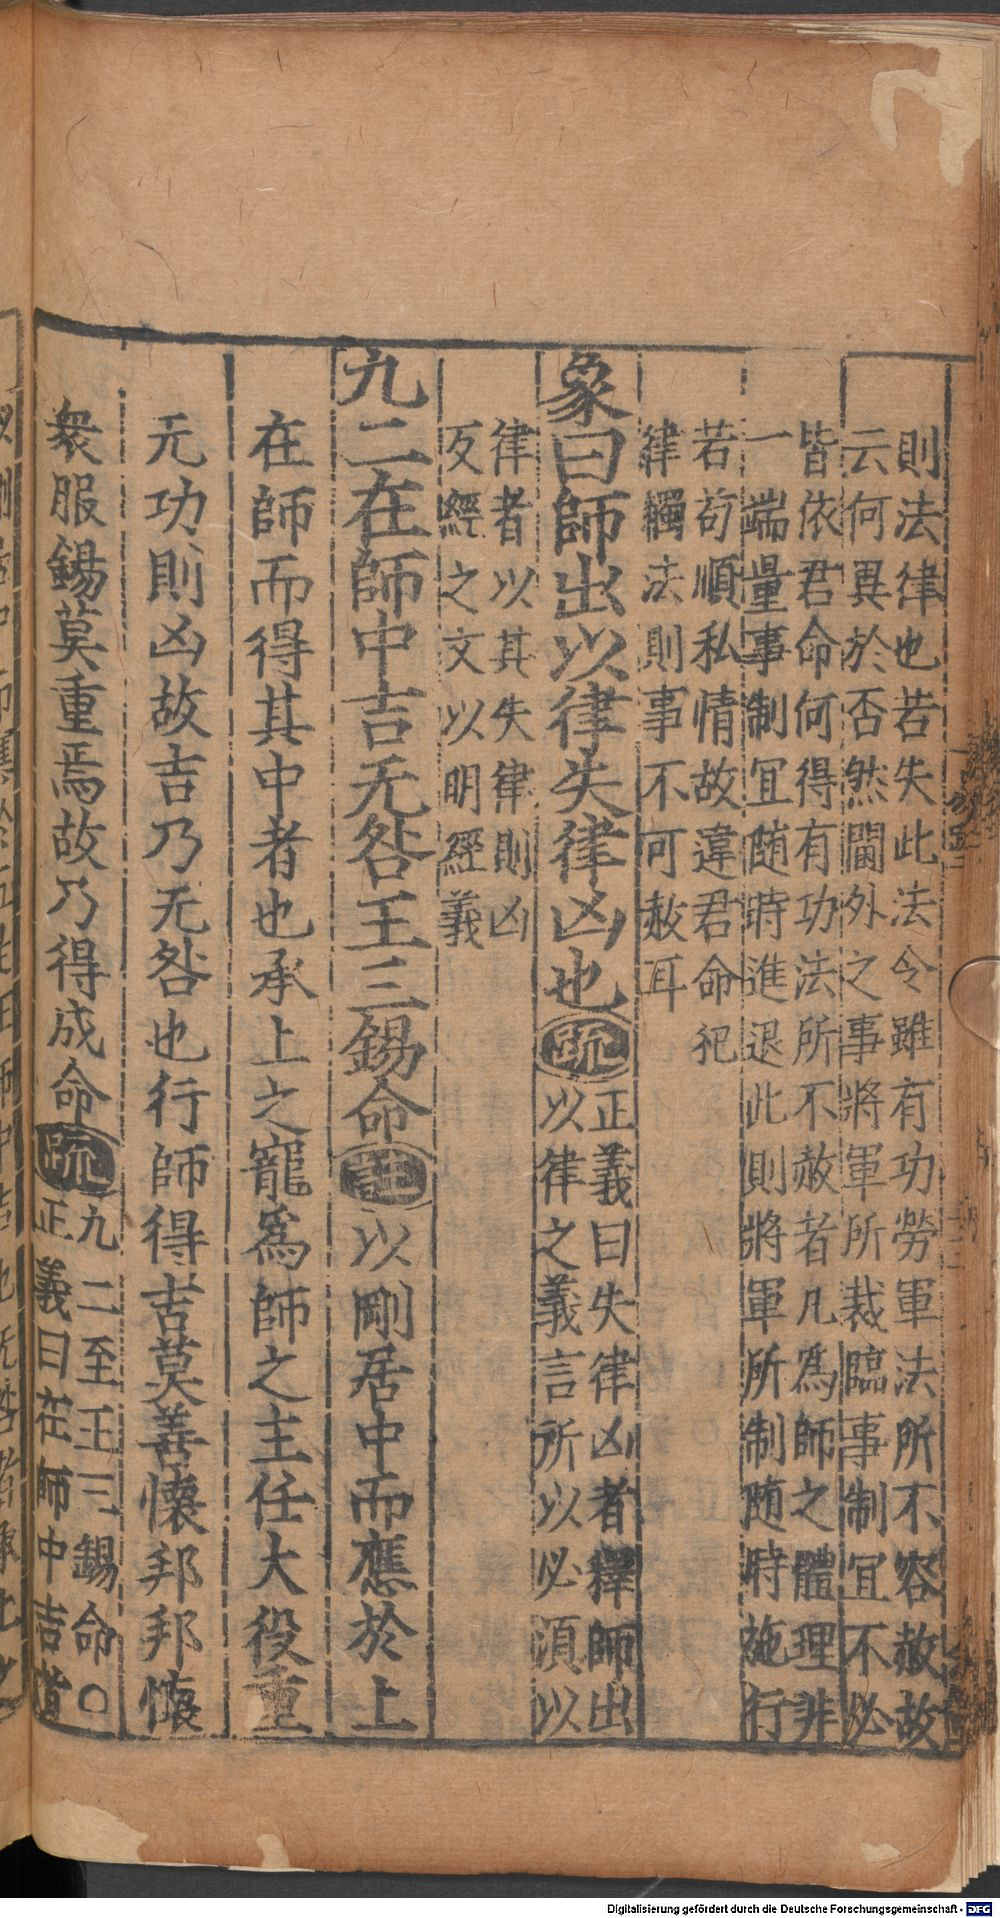 則法律也若失此法令雖有功勞軍法所不容赦故
云何異於否然閫外之事將軍所裁臨事制宜不必
皆依君命何得有功法所不赦者凡爲師之體理非
一端量事制宜随時進退此則將軍所制随時施行
若苟順私情故違君命犯
律觸法則事不可赦耳
象曰師出以律失律凶也疏
正義曰失律凶者釋師出
以律之義言所以必須以
律者以其失律則凶
反經之文以明經義
九二在師中吉无咎王三錫命註以剛居中而應於上
在師而得其中者也承上之寵爲師之主任大役重
无功則凶故吉乃无咎也行師得吉莫善懷邦邦懷
衆服錫莫重焉故乃得成命疏
九二至王三錫命○
正義曰在師中吉者
Digitalisierung gefördert durch die Deutsche Forschungsgemeinschaft - DFG